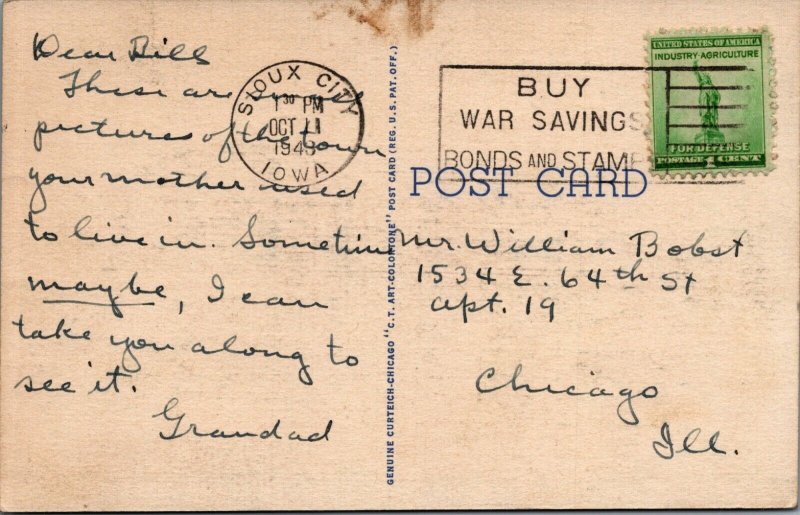 Dear Bill
These are
pictures of the town
your mother used
to live in. Sometime
maybe, I can
take you along to
see it.
Grandad
SIOUX CITY
1 30 PM
OCT 11
1943
IOWA
BUY
WAR SAVINGS
BONDS AND STAMPS
UNITED STATES OF AMERICA
INDUSTRY AGRICULTURE
FOR DEFENSE
POSTAGE 1 CENT
POST CARD
GENUINE CURTEICH-CHICAGO "C.T. ART-COLORTONE" POST CARD (REG. U.S. PAT. OFF.)
Mr. William Bobst
1534 E. 64th St
apt. 19
Chicago
Ill.